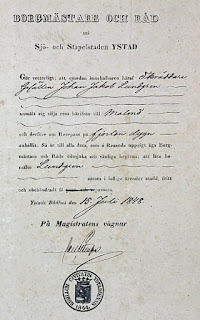 BORGMÄSTARE OCH RÅD
uti
Sjö- och Stapelstaden YSTAD
Gör veterligt, att emedan innehafvaren häraf Skräddare
Gesällen Johan Jakob Lundgren
anmält sig vilja resa härifrån till Malmö
och derföre om Respass på fjorton dygn
anhållit: Så är till alla dem, som å Resande uppsigt äga Borg-
mästare och Råds tjenstliga och vänliga begäran, att låta be-
rörde Lundgren
såsom i lofliga ärender stadd, fritt
och obehindradt få och repassera.
Ystads Rådhus den 15 Julii 1848
På Magistratens vägnar